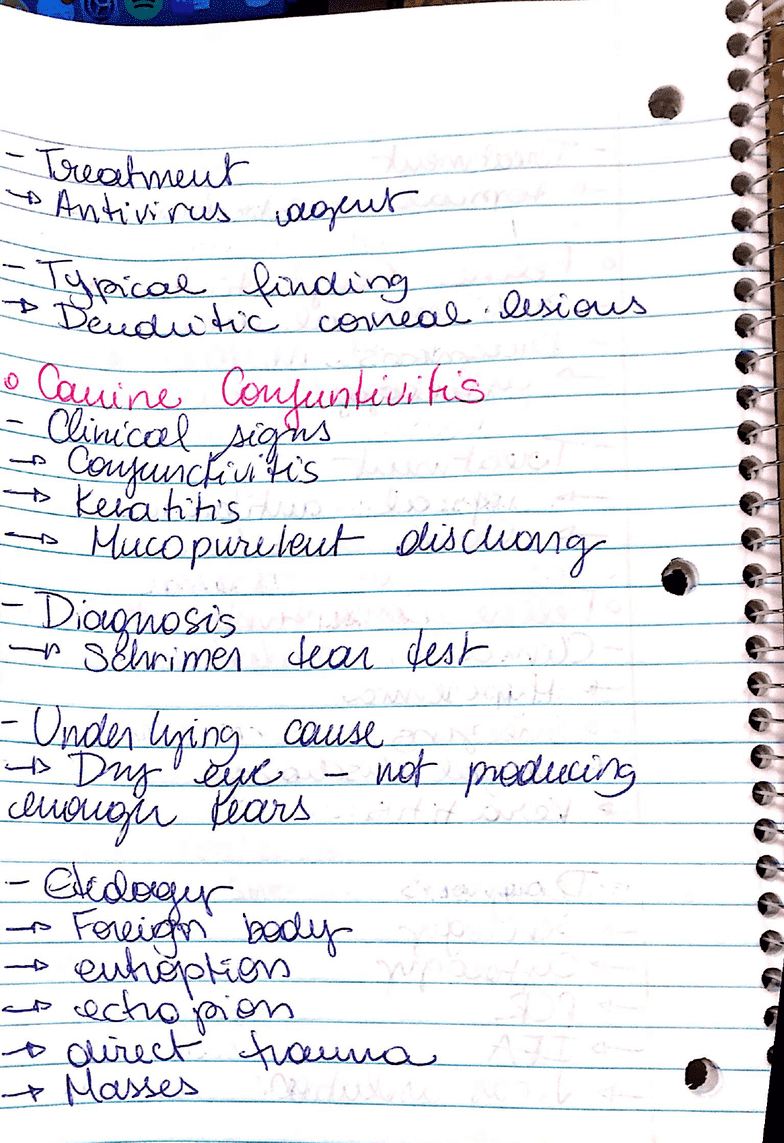 - Treatment
→ Antivirus agent
- Typical finding
→ Dendritic corneal lesions
o Canine Conjuntivitis
- Clinical signs
→ Conjunctivitis
→ Keratitis
→ Mucopurelent discharg
- Diagnosis
→ Schrimer tear test
- Underlying cause
→ Dry eye - not producing
enough tears
- Etiology
→ Foreign body
→ entroption
→ ectropion
→ direct trauma
→ Masses